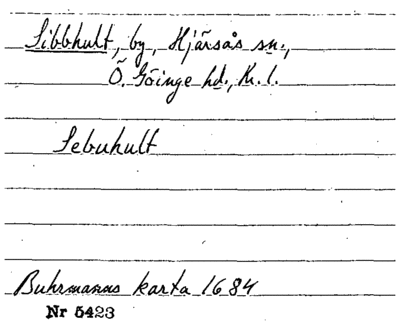 Sibbhult, by, Hjärsås sn.,
Ö. Göinge hd., Kr. l.
Sebuhult
Buhrmanns karta 1684
Nr 5423